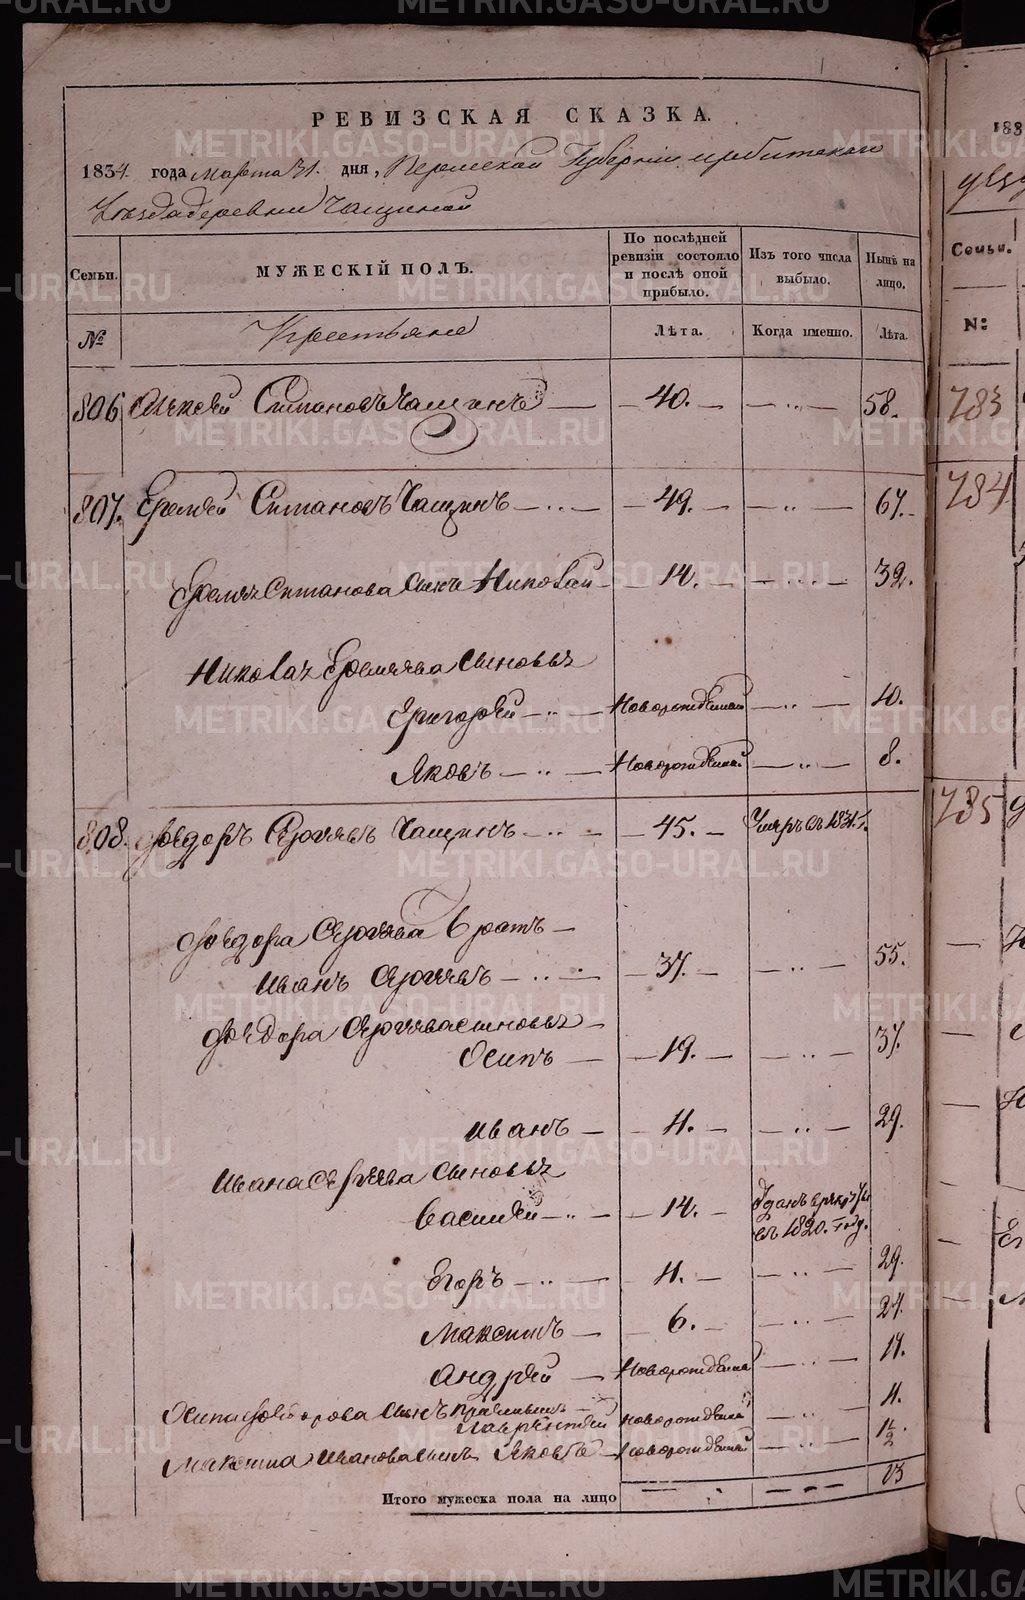 РЕВИЗСКАЯ СКАЗКА.
1834 года марта 31. дня, Пермской Губернии ирбитскаго
Уезда деревни Чащиной
Семьи. МУЖЕСКІЙ ПОЛЪ. По послѣдней ревизіи состояло и послѣ оной прибыло. Изъ того числа выбыло. Нынѣ на лицо.
№ Крестьяне Лѣта. Когда именно. Лѣта.
806 Алексѣй Степановъ Чащинъ — 40. — — 58.
807. Еремѣй Степановъ Чащинъ — 49. — — 67.
Еремея Степанова сынъ Николай — 14. — — 32.
Николая Еремеева сыновья
Григорѣй — новорожденной — 10.
Яковъ — новорожденной — 8.
808. Федоръ Сергеевъ Чащинъ — 45. — Умеръ въ 1831. г.
Федора Сергеева братъ —
Иванъ Сергеевъ — 37. — — 55.
Федора Сергеева сыновья —
Осипъ — 19. — — 37.
Иванъ — 11. — — 29.
Ивана Сергеева сыновья
Василѣй — 14. — Отданъ в рекруты
въ 1820. году.
Егоръ — 11. — — 29.
Максимъ — 6. — — 24.
Андрѣй — новорожденной — 14.
Осипа Федорова сынъ
Лаврентей новорожденной — 11.
Максима Иванова сынъ Яковъ — новорожденной — 1½.
Итого мужеска пола на лицо — — 13
183
Семьи.
№:
783
784
785
METRIKI.GASO-URAL.RU